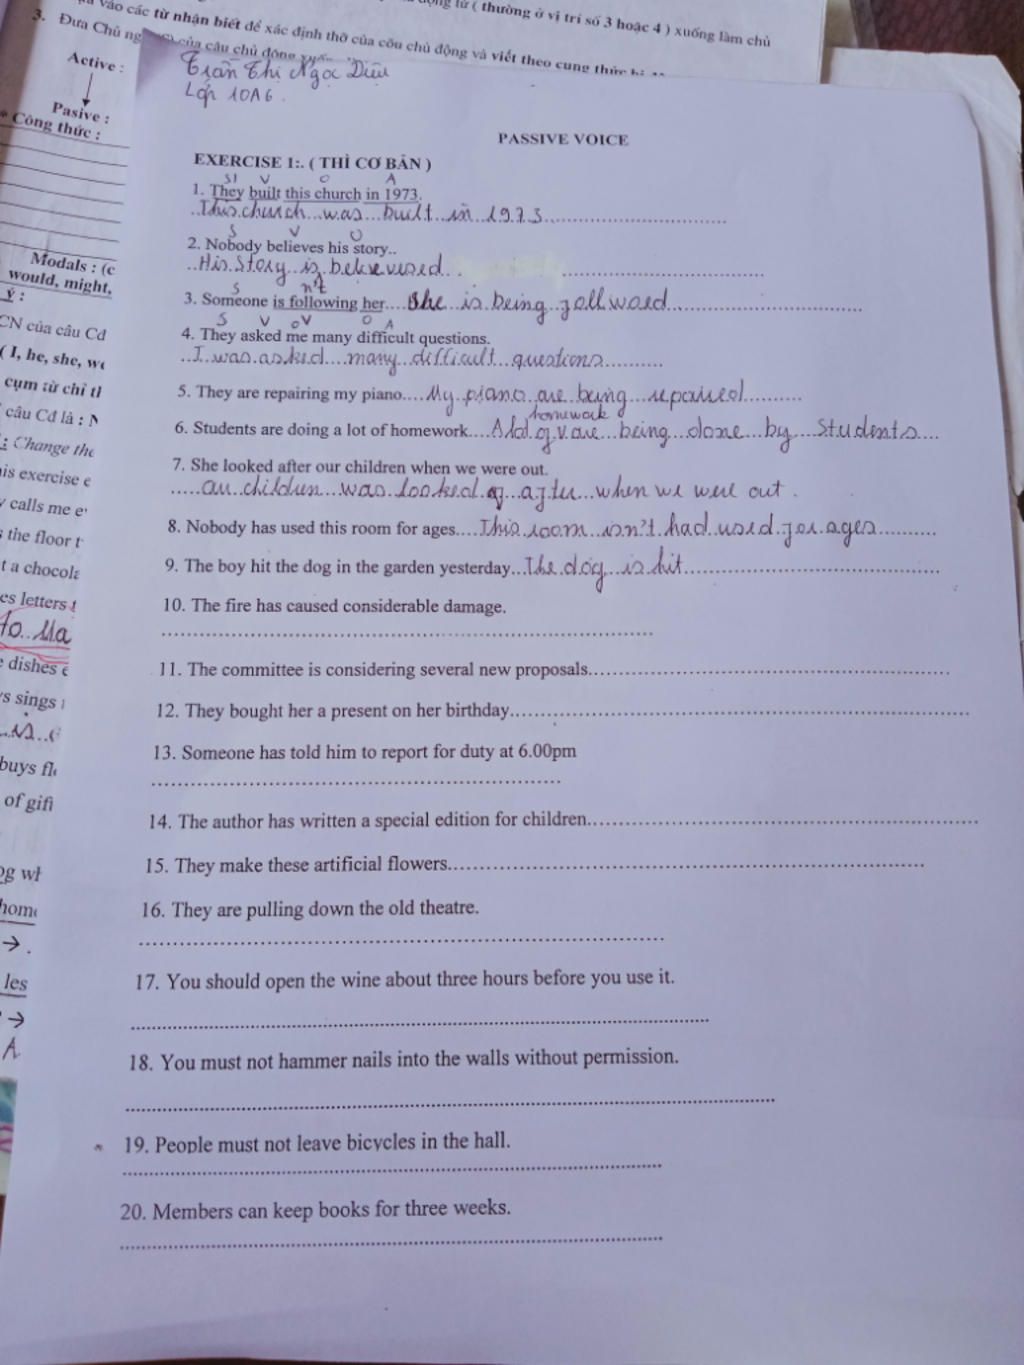 vào các từ nhận biết để xác định thờ của côu chủ động và viết theo cung thức
từ ( thường ở vị trí số 3 hoặc 4 ) xuống làm chủ
3. Đưa Chủ ng của câu chủ động
Active :
Pasive :
* Công thức :
Modals : (c
would, might,
ý :
CN của câu Cđ
( I, he, she, we
cụm từ chỉ tl
câu Cđ là : N
: Change the
is exercise e
calls me e
the floor t
t a chocola
es letters t
to..Ma
dishes e
s sings
..is..
buys fl
of gift
og wh
home
→ .
les
→
A
Trần Thị Ngọc Diệu
Lớp 10A6.
PASSIVE VOICE
EXERCISE 1:. ( THÌ CƠ BẢN )
S1 V O A
1. They built this church in 1973.
This church was built in 1973
S V O
2. Nobody believes his story..
His story is belieevered
S n't
3. Someone is following her.... She is being follwoed
S V O V O A
4. They asked me many difficult questions.
I was asked many difficult questions
5. They are repairing my piano.... My piano are being repaired
homework
6. Students are doing a lot of homework.... A lot of v are being done by students
7. She looked after our children when we were out.
children was looked after when we were out .
8. Nobody has used this room for ages.... This room isn't had used for ages
9. The boy hit the dog in the garden yesterday... The dog is hit
10. The fire has caused considerable damage.
11. The committee is considering several new proposals.
12. They bought her a present on her birthday.
13. Someone has told him to report for duty at 6.00pm
14. The author has written a special edition for children.
15. They make these artificial flowers.
16. They are pulling down the old theatre.
17. You should open the wine about three hours before you use it.
18. You must not hammer nails into the walls without permission.
19. People must not leave bicycles in the hall.
20. Members can keep books for three weeks.